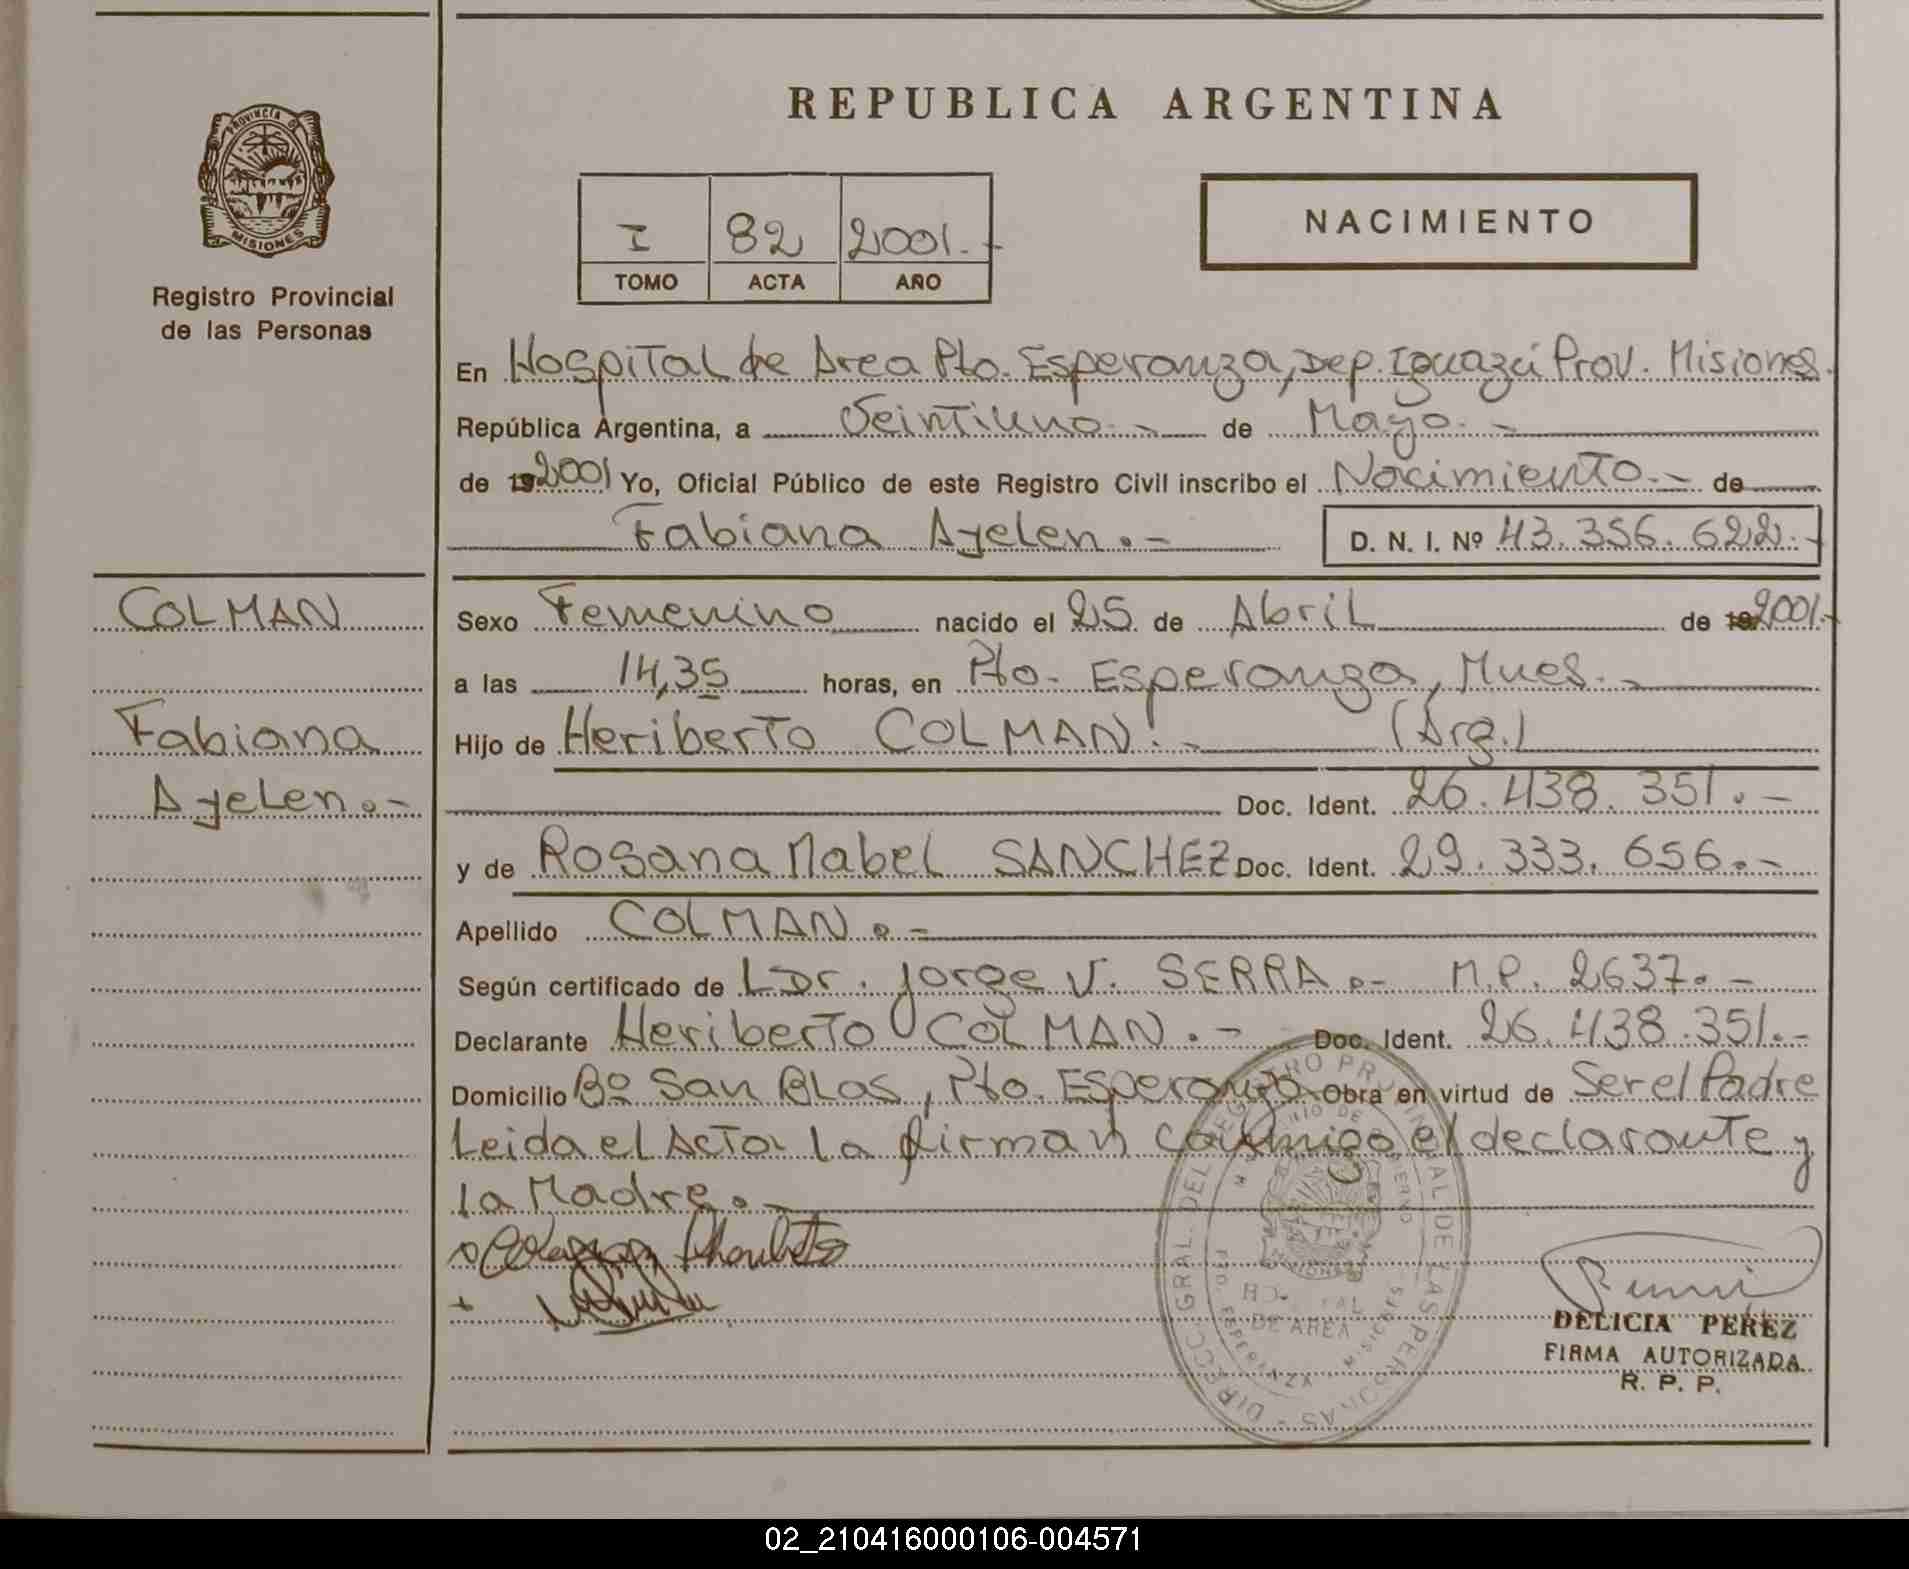 REPUBLICA ARGENTINA
PROVINCIA DE MISIONES
Registro Provincial
de las Personas
I 82 2001.-
TOMO ACTA AÑO
NACIMIENTO
En Hospital de Area Pto. Esperanza, Dep. Iguazú Prov. Misiones.
República Argentina, a Veintiuno.- de Mayo.-
de 19 2001 Yo, Oficial Público de este Registro Civil inscribo el Nacimiento.- de
Fabiana Ayelen.- D. N. I. Nº 43.356.622.-
COLMAN
Fabiana
Ayelen.-
Sexo Femenino nacido el 25 de Abril de 19 2001.-
a las 14,35 horas, en Pto. Esperanza, Mnes.-
Hijo de Heriberto COLMAN.- (Arg.)
Doc. Ident. 26.438.351.-
y de Rosana Mabel SANCHEZ Doc. Ident. 29.333.656.-
Apellido COLMAN.-
Según certificado de Dr. Jorge V. SERRA.- M.P. 2637.-
Declarante Heriberto COLMAN.- Doc. Ident. 26.438.351.-
Domicilio Bº San Blas, Pto. Esperanza Obra en virtud de Ser el Padre
Leida el Acta la firman conmigo el declarante y
la Madre.-
DIRECC. GRAL. DEL REGISTRO PROVINCIAL DE LAS PERSONAS
DE AREA
PTO. ESPERANZA MISIONES
DELICIA PEREZ
FIRMA AUTORIZADA
R. P. P.
02_210416000106-004571